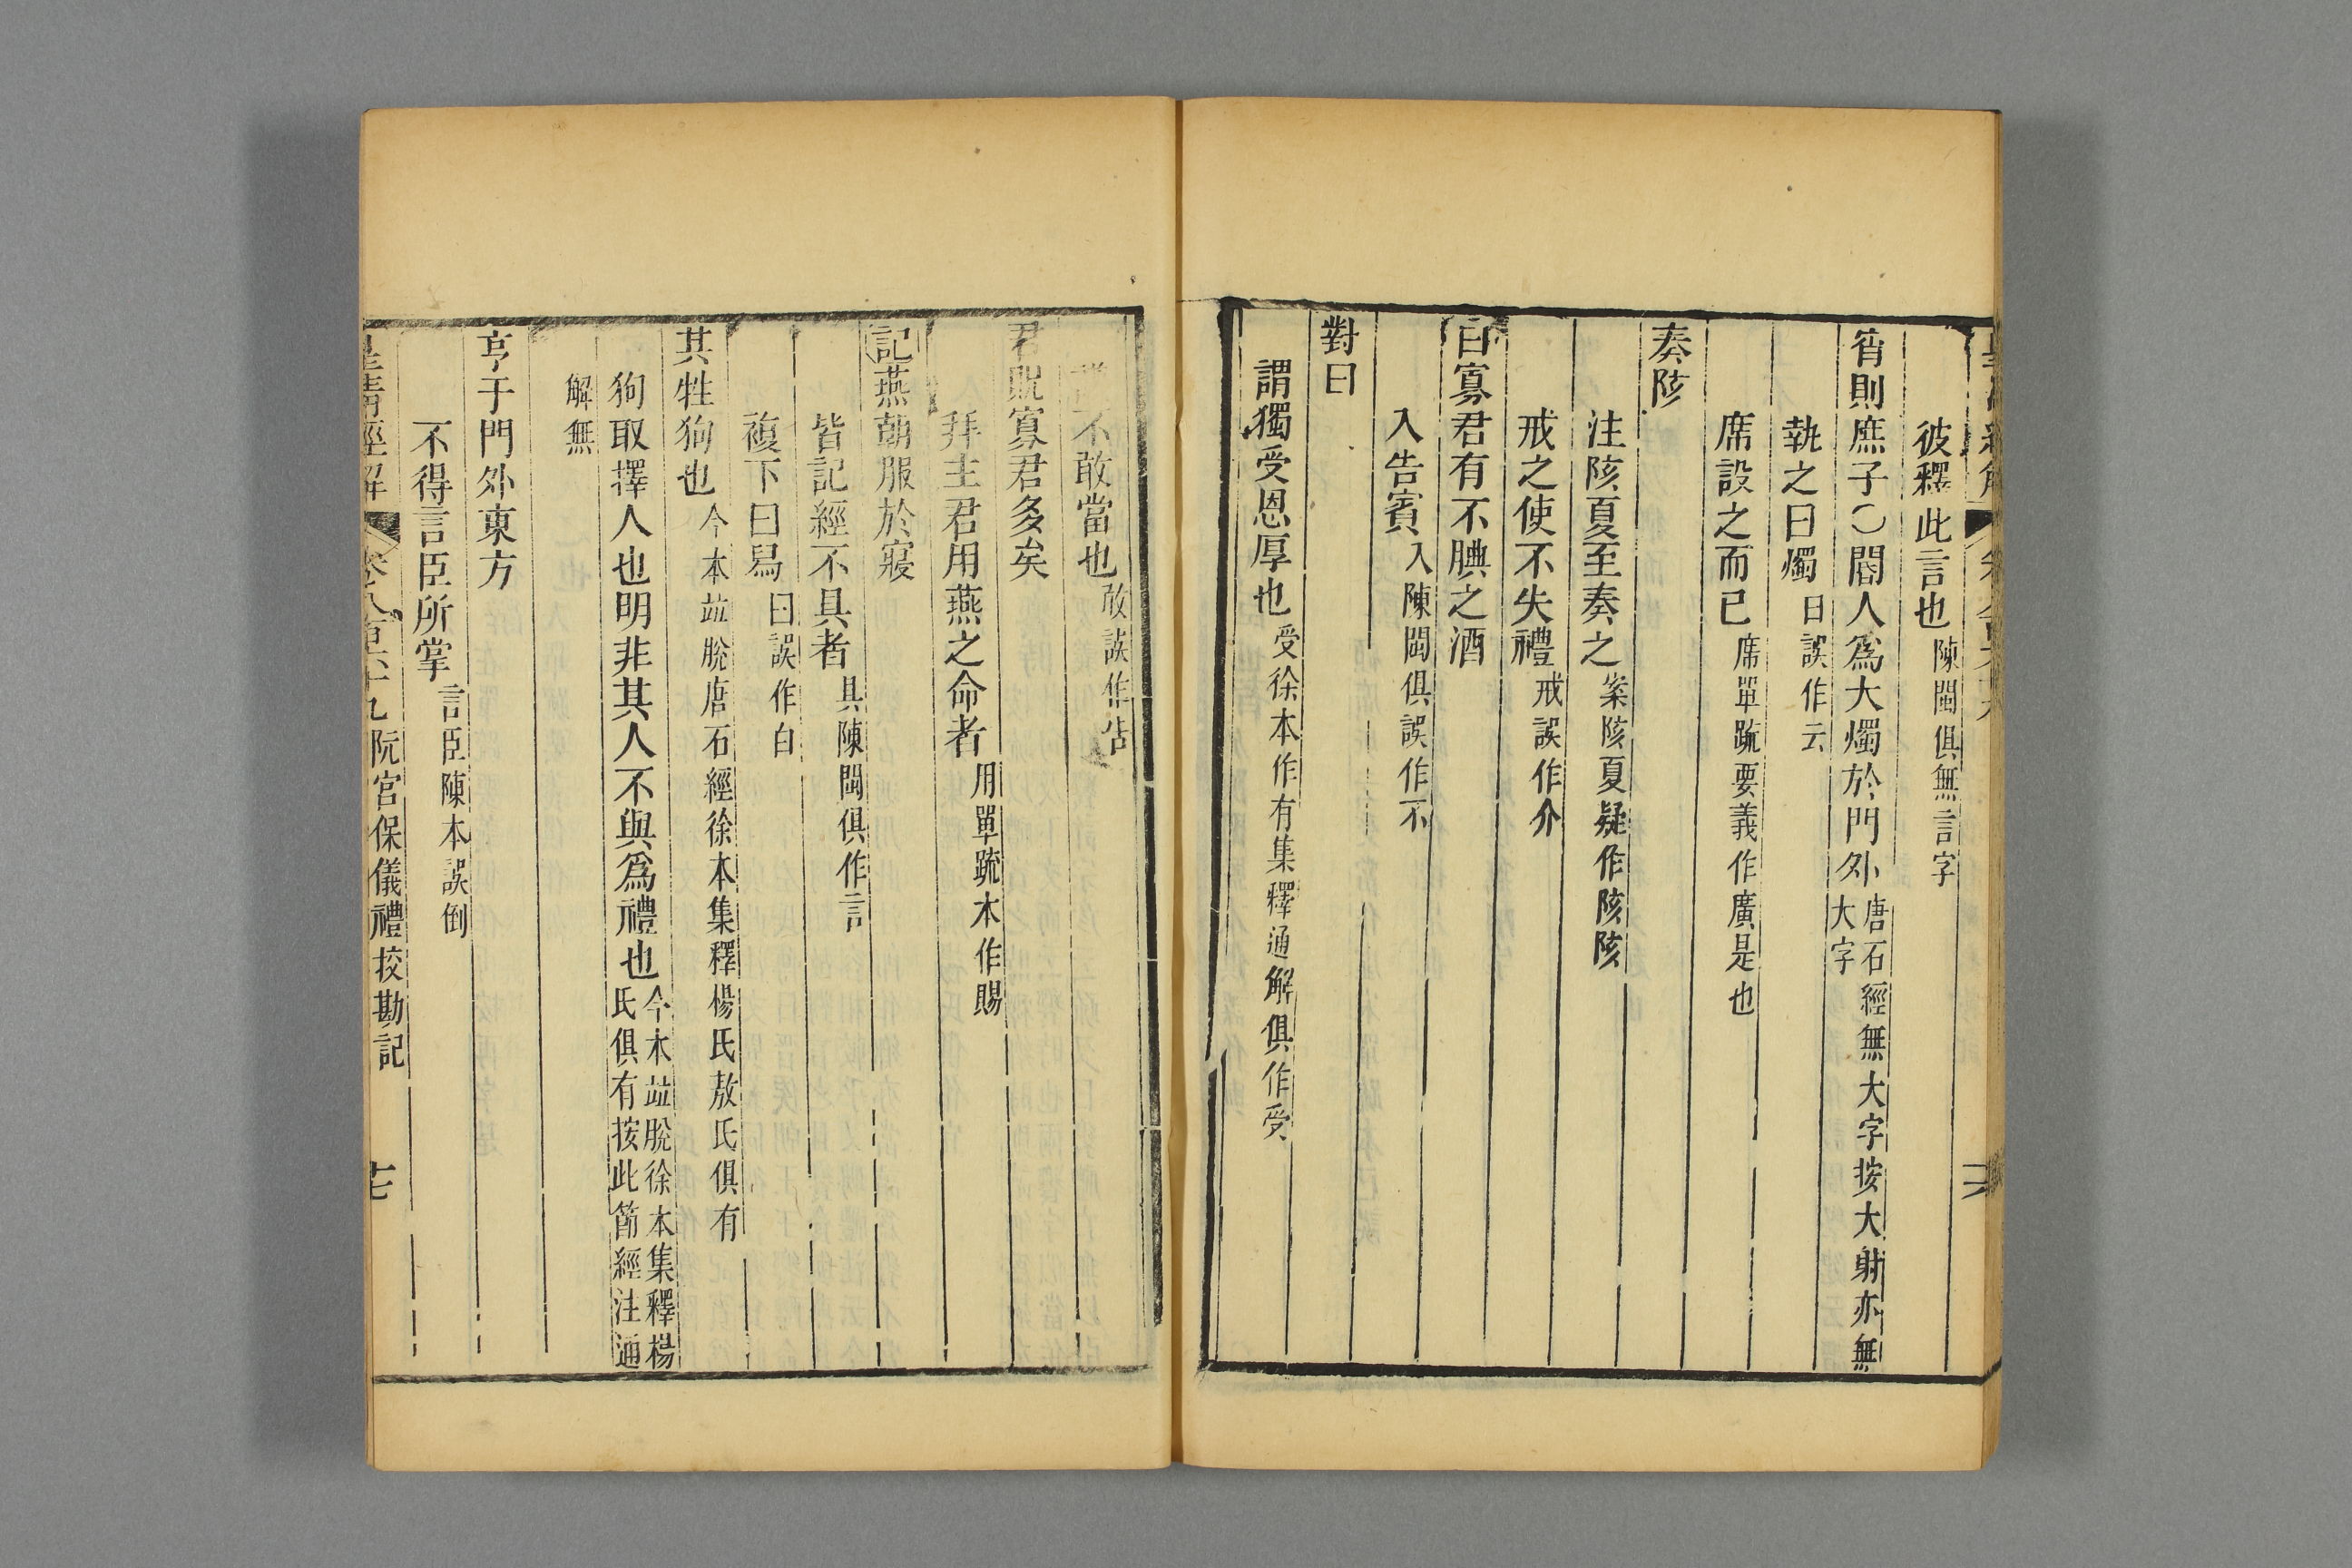 彼釋此言也陳閩俱無言字
宵則庶子〇閽人爲大燭於門外唐石經無大字按大射亦無大字
執之曰燭曰誤作云
席設之而已席單疏要義作廣是也
奏陔
注陔夏至奏之案陔夏疑作陔陔
戒之使不失禮戒誤作介
曰寡君有不腆之酒
入告賓入陳閩俱誤作不
對曰
謂獨受恩厚也受徐本作有集釋通解俱作受
不敢當也敢誤作佔
君貺寡君多矣
拜主君用燕之命者用單疏本作賜
記燕朝服於寢
皆記經不具者具陳閩俱作言
複下曰舄曰誤作白
其牲狗也今本竝脫唐石經徐本集釋楊氏敖氏俱有
狗取擇人也明非其人不與爲禮也今本竝脫徐本集釋楊氏俱有按此節經注通
解無
亨于門外東方
不得言臣所掌言臣陳本誤倒
皇清經解 卷八百六十九 阮宮保儀禮挍勘記 十七